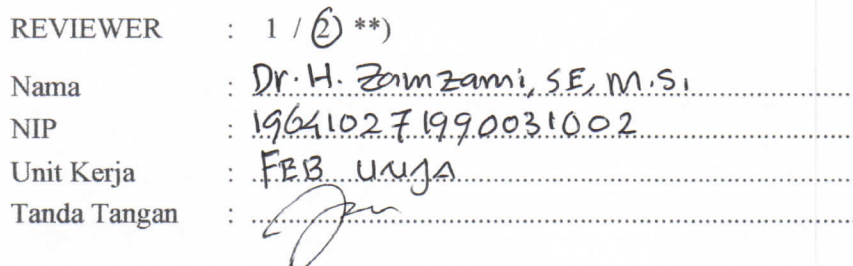 REVIEWER : 1 / 2 **)
Nama : Dr. H. Zamzami, SE, M.Si
NIP : 196410271990031002
Unit Kerja : FEB UNJA
Tanda Tangan :